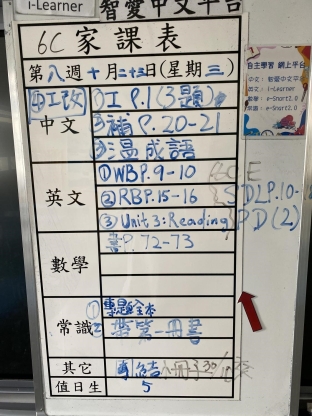 i-Learner 智愛中文平台
6C 家課表
第八週十月二十三日(星期三)
中文
①工 P.1(3題)
②補 P.20-21
③温成語
英文
①WBP.9-10
②RBP.15-16
③Unit 3: Reading
SDLP.10-
PD(2)
數學
書P.72-73
常識
①專題全本
②帶第一冊書
其它
值日生
5
自主學習 網上平台
中文: 智愛中文平台
英文: i-Learner
數學: e-Smart2.0
常識: e-Smart2.0